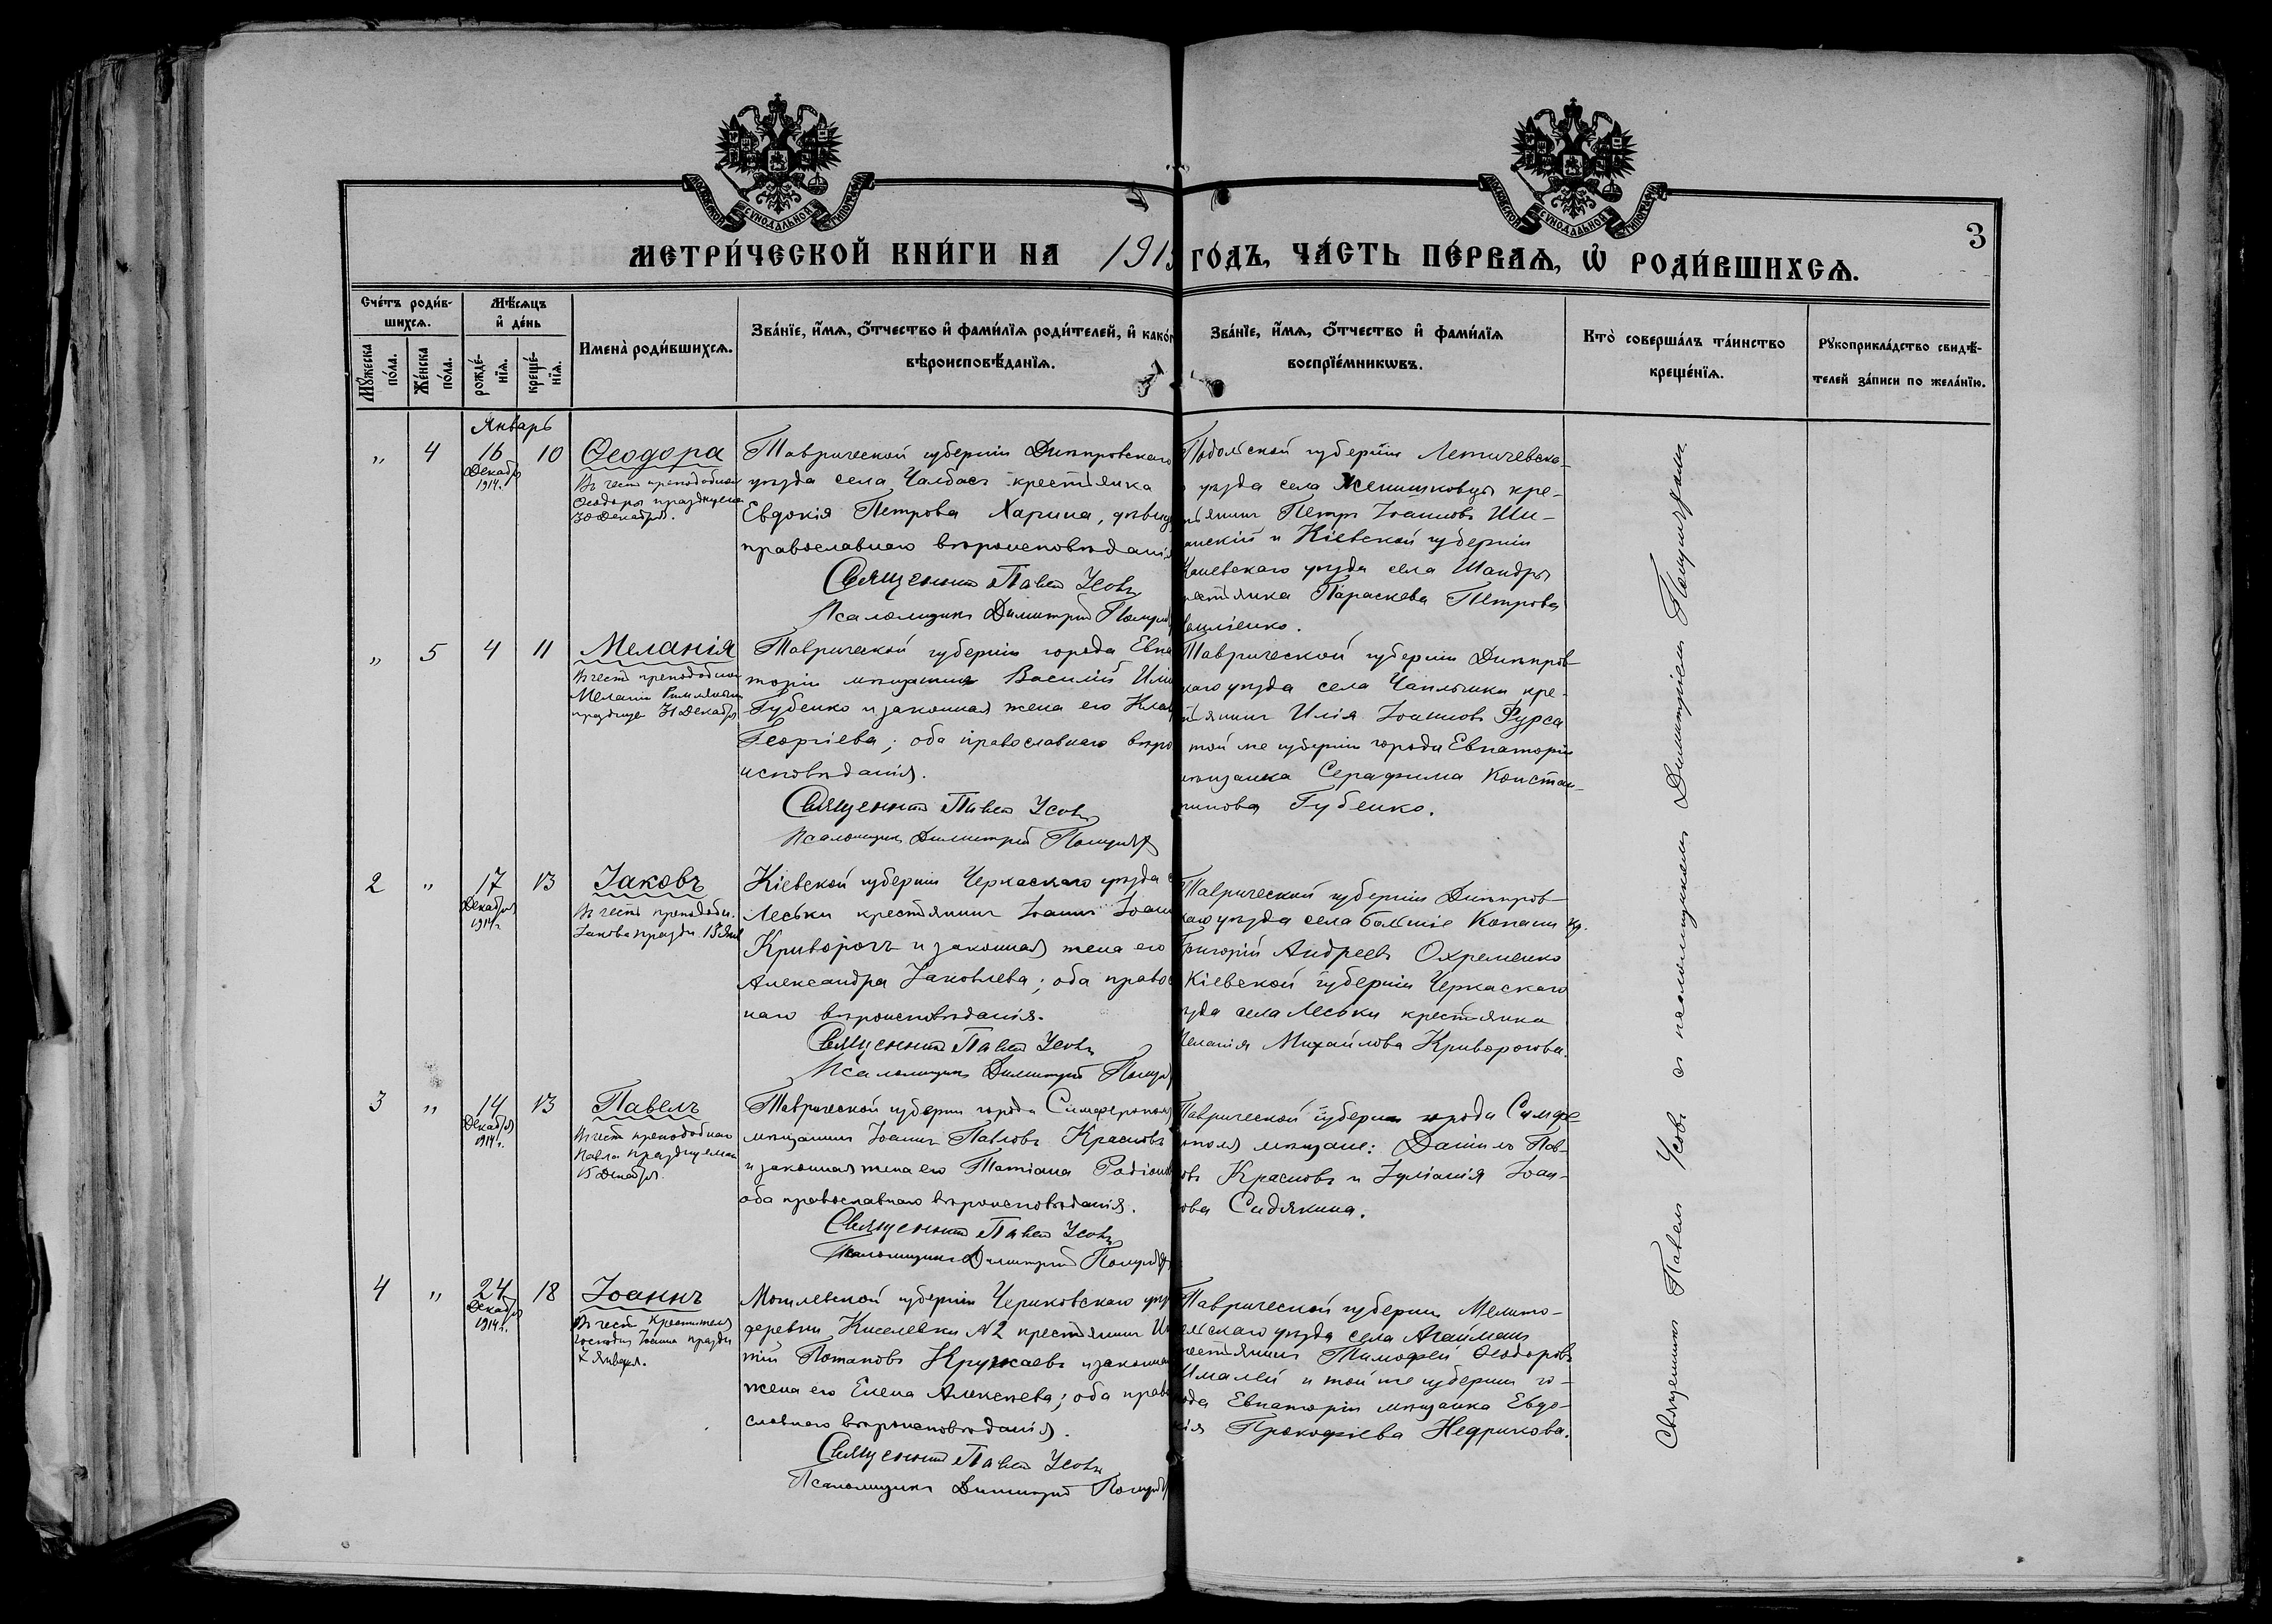 МОСКОВСКОЙ СѴНОДАЛЬНОЙ ТИПОГРАФІИ
МОСКОВСКОЙ СѴНОДАЛЬНОЙ ТИПОГРАФІИ
3
МЕТРИ́ЧЕСКОЙ КНИ́ГИ НА 1915 ГО́ДЪ, ЧА́СТЬ ПЕ́РВАѦ, Ѡ҆ РОДИ́ВШИХСѦ.
Сче́тъ роди́в-
шихсѧ.
Мꙋ́жеска по́ла.
Же́нска по́ла.
Мѣ́сѧцъ
и҆ де́нь
рожде́-
нїѧ.
креще́-
нїѧ.
Имена̀ роди́вшихсѧ.
Зва́нїе, и҆́мѧ, ѻ҆́тчество и҆ фами́лїѧ роди́телей, и҆ како́г
вѣроисповѣ́данїѧ.
Зва́нїе, и҆́мѧ, ѻ҆́тчество и҆ фами́лїѧ
воспрїе́мникѡвъ.
Кто̀ соверша́лъ та́инство
креще́нїѧ.
Рꙋкоприкла́дство свидѣ́-
телей за́писи по жела́нїю.
Январь
„ 4 16 10 Ѳеодора
Декабря
1914 г.
Въ честь преподобной
Ѳеодоры празднуемой
30 Декабря.
Таврической губерніи Днѣпровскаго
уѣзда села Чалбасъ крестьянка
Евдокія Петрова Харина, дѣвица
православнаго вѣроисповѣданія
Священникъ Павелъ Усовъ
Псаломщикъ Димитрій
Подольской губерніи Летичевска-
уѣзда села кре-
стьянинъ Петръ Іоанновъ Ши-
анскій и Кіевской губерніи
Каневскаго уѣзда села Шандры
крестьянка Параскева Петрова
„ 5 4 11 Меланія
Въ честь преподобной
Меланіи Римляныни
празднуем 31 Декабря
Таврической губерніи города Евпа
торіи мѣщанинъ Василій Или
Губенко и законная жена его Клав
Георгіева; оба православнаго вѣро
исповѣданія.
Священникъ Павелъ Усовъ
Псаломщикъ Димитрій
Таврической губерніи Днѣпров-
скаго уѣзда села Чаплынки кре-
стьянинъ Илія Іоанновъ Фурса
той же губерніи города Евпаторіи
мѣщанка Серафима Констан-
тинова Губенко.
2 „ 17 13 Іаковъ
Декабря
1914 г.
Въ честь преподобн.
Іакова праздн. 13 Янв
Кіевской губерніи Черкаскаго уѣзда с
Леськи крестьянинъ Іоаннъ Іоан
Криворогъ и законная жена его
Александра Іаковлева; оба правос
наго вѣроисповѣданія.
Священникъ Павелъ Усовъ
Псаломщикъ Димитрій
Таврической губерніи Днѣпров-
скаго уѣзда села Большіе Копани кр.
Григорій Андреевъ Охременко
Кіевской губерніи Черкаскаго
уѣзда села Леськи крестьянка
Меланія Михайлова Криворогова.
3 „ 14 13 Павелъ
Декабря
1914 г.
Въ честь преподобнаго
Павла празднуемаго
15 Декабря.
Таврической губерніи города Симферополя
мѣщанинъ Іоаннъ Павловъ Красновъ
и законная жена его Татіана Родіонов
оба православнаго вѣроисповѣданія.
Священникъ Павелъ Усовъ
Псаломщикъ Димитрій
Таврической губерніи города Симфе
рополя мѣщане: Даніилъ Пав-
ловъ Красновъ и Іуліанія Іоан-
нова Сидякина.
4 „ 24 18 Іоаннъ
Декабря
1914 г.
Въ честь Крестителя
Господня Іоанна праздн
7 Января.
Могилевской губерніи Чериковскаго уѣз
деревни Киселевки №2 крестьянинъ Иг
тій Потаповъ Кружаевъ и законная
жена его Елена Алексѣева; оба право
славнаго вѣроисповѣданія.
Священникъ Павелъ Усовъ
Псаломщикъ Димитрій
Таврической губерніи Мелито-
польскаго уѣзда села Агайманъ
крестьянинъ Тимофей Ѳеодоровъ
и той же губерніи го-
рода Евпаторіи мѣщанка Евдо-
кія Прокофіева Недрикова.
Священникъ Павелъ Усовъ съ псаломщикомъ Димитріемъ